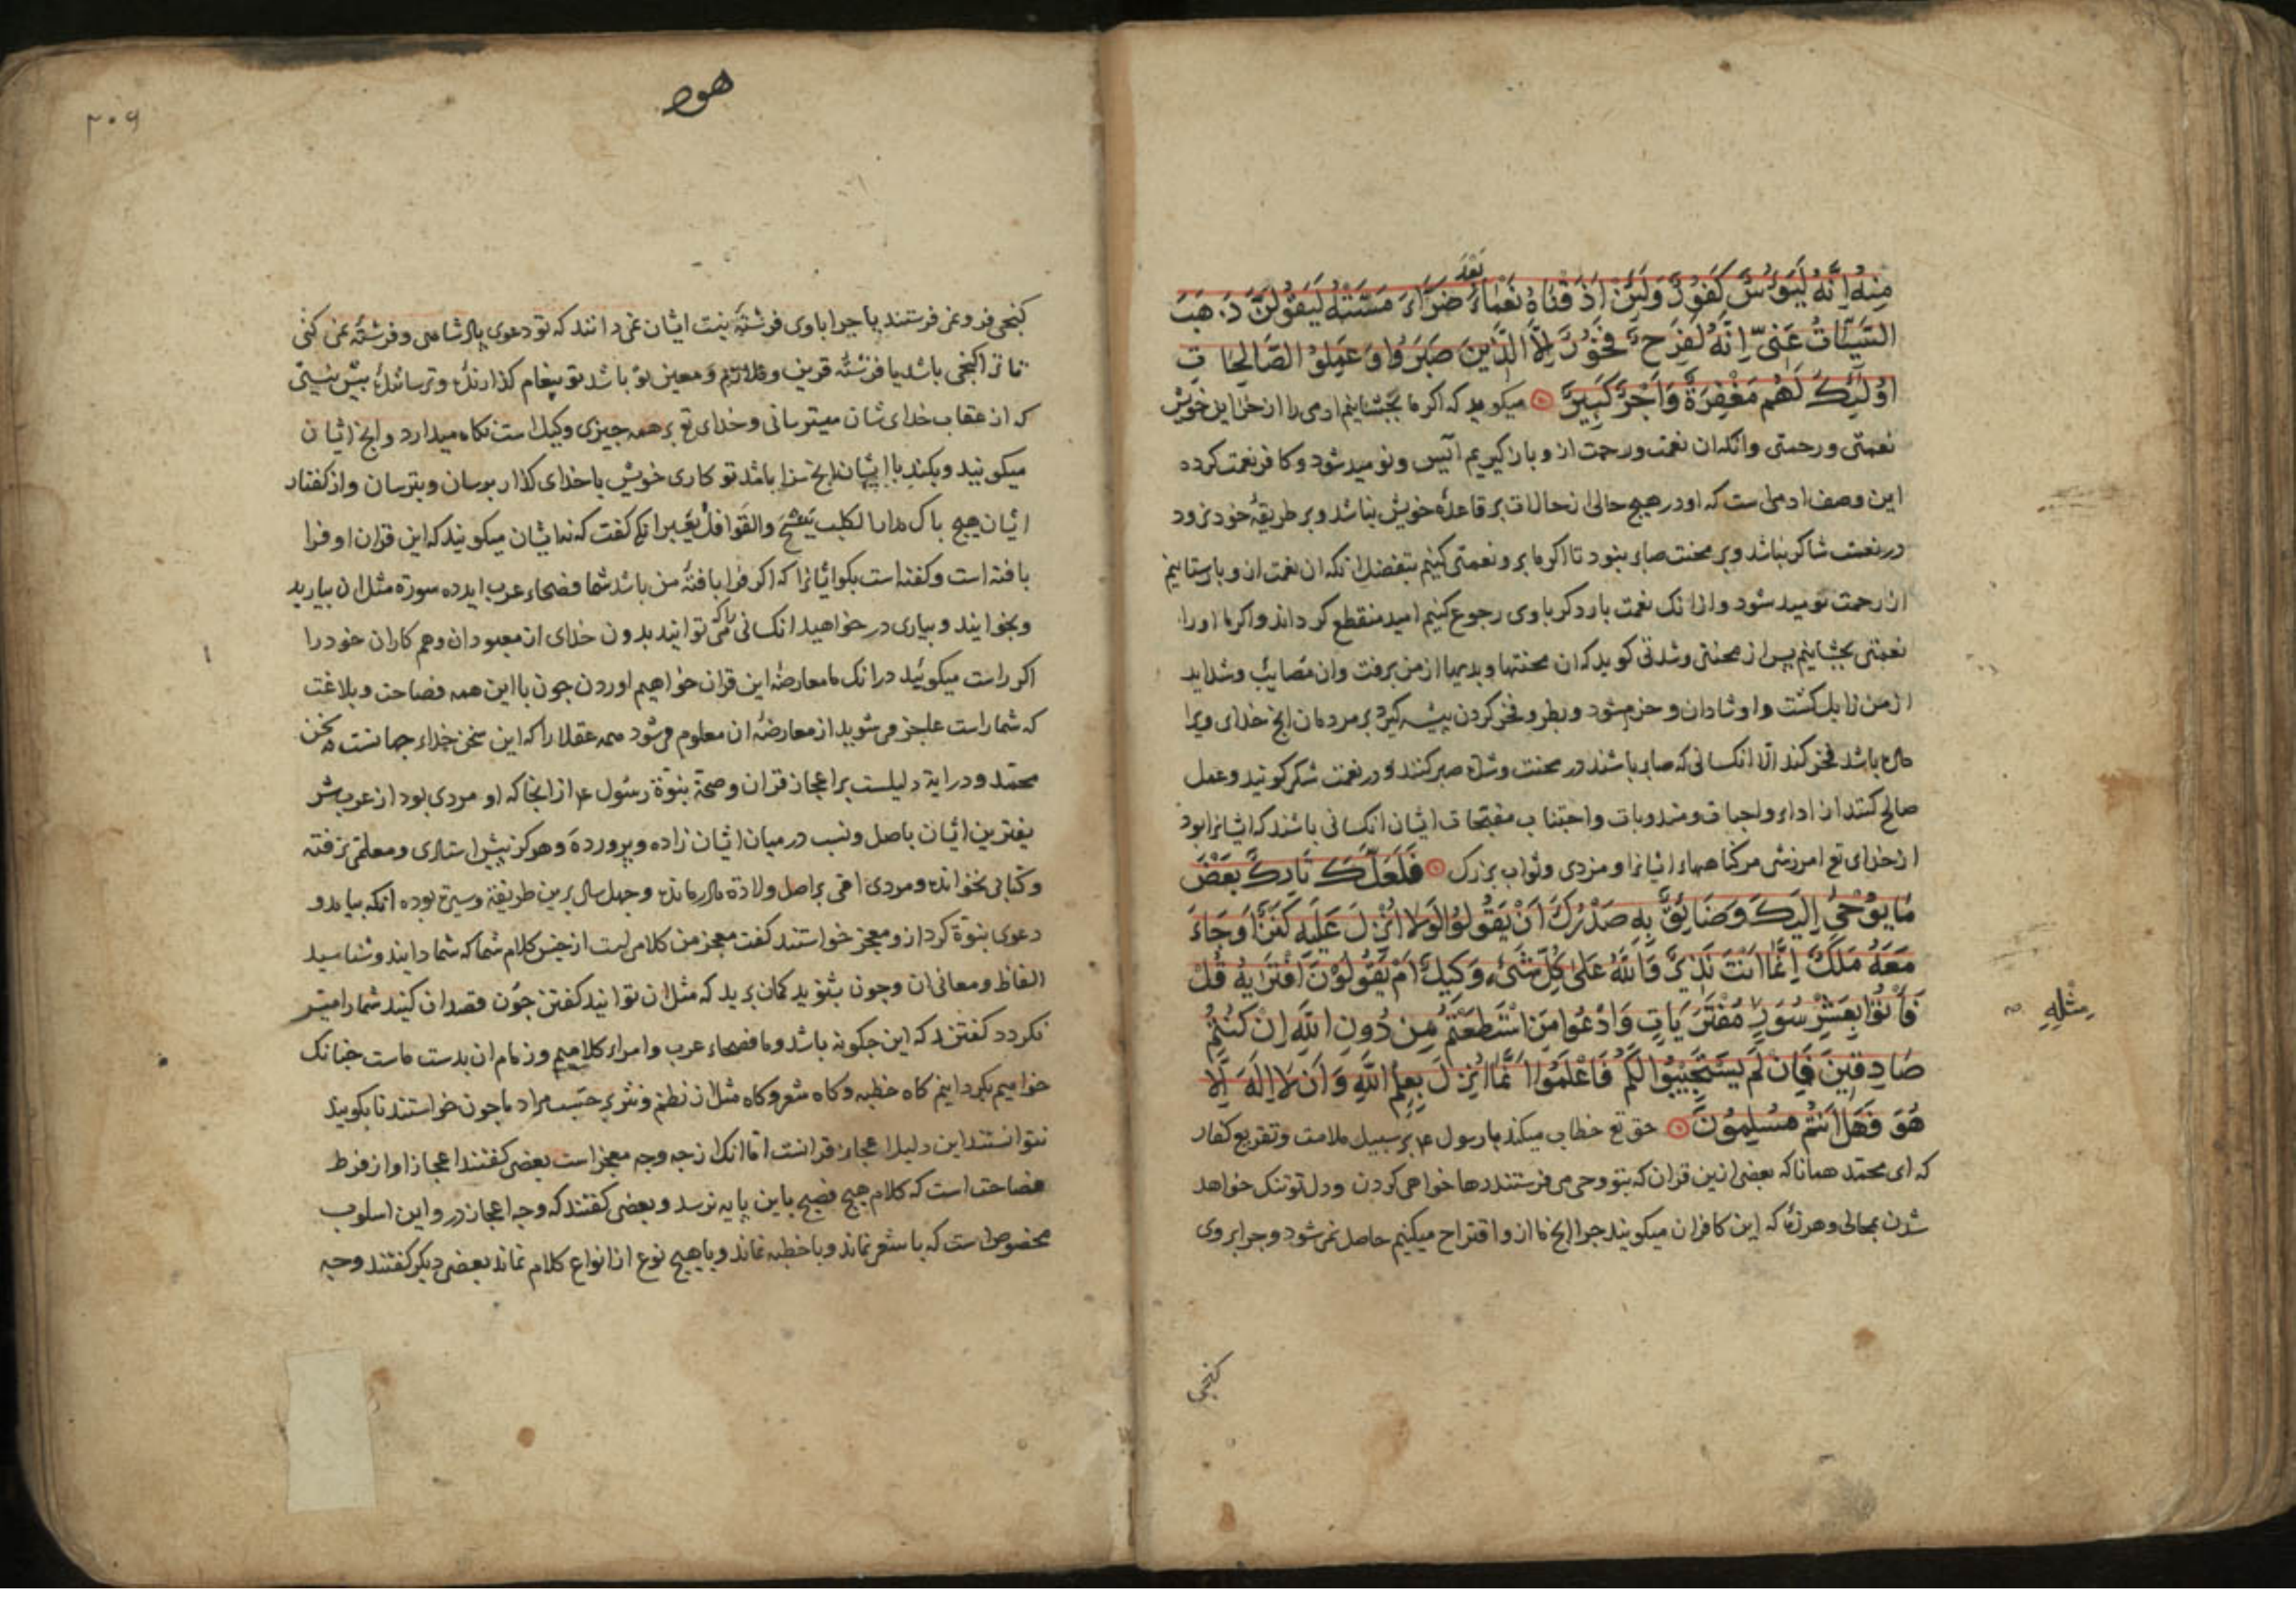 بعد
منه انه ليوس كفور ولئن اذقناه نعماء ضراء مسته ليقولن ذهب
السيئات عنى انه لفرح فخور الا الذين صبروا وعملوا الصالحات
اولئك لهم مغفرة واجر كبير ميكويد كه اكر ما بچشانيم ادمى را از خزاين خويش
نعمتى ورحمتى وانكه ان نعمت ورحمت از و باز كيريم آيس ونوميد شود وكافر نعمت كرده
اين وصف ادمى است كه او در هيچ حالى از حالات بر قاعدهٔ خويش نباشد و بر طريقهٔ خود نرود
در نعمت شاكر نباشد و بر محنت صابر نبود تا اكر ما برو نعمتى كنيم بتفضل انكه ان نعمت از و باز ستانيم
از رحمت نوميد شود واز انك نعمت بار دكر باوى رجوع كنيم اميد منقطع كرداند واكر ما اورا
نعمتى بچشانيم پس از محنتى وشدتى كويد كه ان محنتها وبديها از من برفت وان مصايب وشدايد
از من زايل كشت واو شادان وخرم شود وبطر وفخر كردن پيشه كيرد بر مردمان انچ خداى ويرا
داده باشد فخر كند الا انكسانى كه صابر باشند در محنت وشدة صبر كنند و در نعمت شكر كويند وعمل
صالح كنند از اداء واجبات ومندوبات واجتناب مقبحات ايشان انكسانى باشند كه ايشانرا بود
از خداى تع امرزش مر كناهها ايشانرا ومزدى وثواب بزرك فلعلك تارك بعض
ما يوحى اليك وضائق به صدرك ان يقولوا لولا انزل عليه كنز او جاء
معه ملك انما انت نذير والله على كل شىء وكيل ام يقولون افتريه قل
فأتوا بعشر سور مفتريات وادعوا من استطعتم من دون الله ان كنتم
مثله
صادقين فان لم يستجيبوا لكم فاعلموا انما انزل بعلم الله وان لا اله الا
هو فهل انتم مسلمون حق تع خطاب ميكند با رسول عم بر سبيل ملامت وتقريع كفار
كه اى محمد همانا كه بعضى ازين قران كه بتو وحى مى فرستند رها خواهى كردن و دل تو تنك خواهد
شدن بمحالى وهرزهٔ كه اين كافران ميكويند چرا انچ ما از و اقتراح ميكنيم حاصل نمى شود و چرا بروى
كنجى
هود
٢٠٦
كنجى فرو نمى فرستند يا چرا باوى فرشتهٔ نيست ايشان نمى دانند كه تو دعوى پادشاهى وفرشتهٔ نمى كنى
تا ترا كنجى باشد يا فرشتهٔ قرين وملازم ومعين تو باشد تو پيغام كذارندهٔ وترسانندهٔ بيش نيستى
كه از عقاب خداى شان ميترسانى وخداى تع بر همه چيزى وكيل است نكاه ميدارد وانچ ايشان
ميكويند وبكند با ايشان انچ سزا باشد تو كارى خويش با خداى كذار برسان وبترسان واز كفتار
ايشان هيچ باك مدار
بافته است وكفته است بكو ايشانرا كه اكر فرا بافتهٔ من باشد شما فصحاء عرب ايد ده سورة مثل ان بياريد
وبخوانيد وبيارى در خواهيد انكسانى را كه مى توانيد بدون خداى از معبودان وهم كاران خود را
اكر راست ميكوئيد در انك ما معارضهٔ اين قران خواهيم اوردن چون با اين همه فصاحت وبلاغت
كه شما راست عاجز مى شويد از معارضهٔ ان معلوم مى شود همه عقلا را كه اين سخن خداء جهانست نه سخن
محمد ودر اية دليلست بر اعجاز قران وصحة نبوة رسول عم از انجا كه او مردى بود از عرب شر
يفترين ايشان باصل ونسب در ميان ايشان زاده وپرورده وهركز پيش استادى ومعلمى نرفته
وكتابى نخوانده ومردى امى بر اصل ولادة مادر مانده وچهل سال برين طريقة وسيرة بوده انكه بيامد و
دعوى نبوة كرد از و معجز خواستند كفت معجز من كلامى است از جنس كلام شما كه شما دانيد وشناسيد
الفاظ ومعانى ان وچون بشنويد كمان بريد كه مثل ان توانيد كفتن چون قصد ان كنيد شما را ميسر
نكردد كفتند كه اين چكونه باشد وما فصحاء عرب وامراء كلاميم وزمام ان بدست ماست چنانك
خواهيم بكردانيم كاه خطبه وكاه شعر وكاه مثل از نظم ونثر بر حسب مراد ما چون خواستند تا بكويند
نتوانستند اين دليل اعجاز قرانست اما انك از چه وجه معجز است بعضى كفتند اعجاز او از فرط
فصاحت است كه كلام هيچ فصيح باين پايه نرسد وبعضى كفتند كه وجه اعجاز در و اين اسلوب
مخصوص است كه با شعر نماند وبا خطبه نماند وبا هيچ نوع از انواع كلام نماند بعضى ديكر كفتند وجه